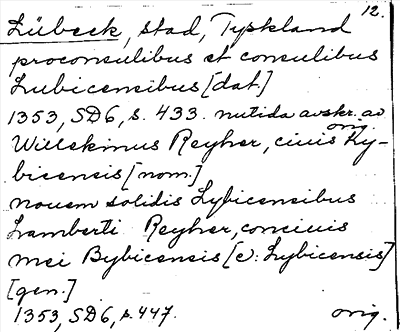 12.
Lübeck, stad, Tyskland
proconsulibus et consulibus
Lubicensibus [dat.]
1353, SD6, s. 433. nutida avskr. av
orig.
Willekinus Reyher, ciuis Ly-
bicensis [nom.]
nouem solidis Lybicensibus
Lamberti Reyher, conciuis
mei Bybicensis [ɔ: Lybicensis]
[gen.]
1353, SD6, s. 447. orig.